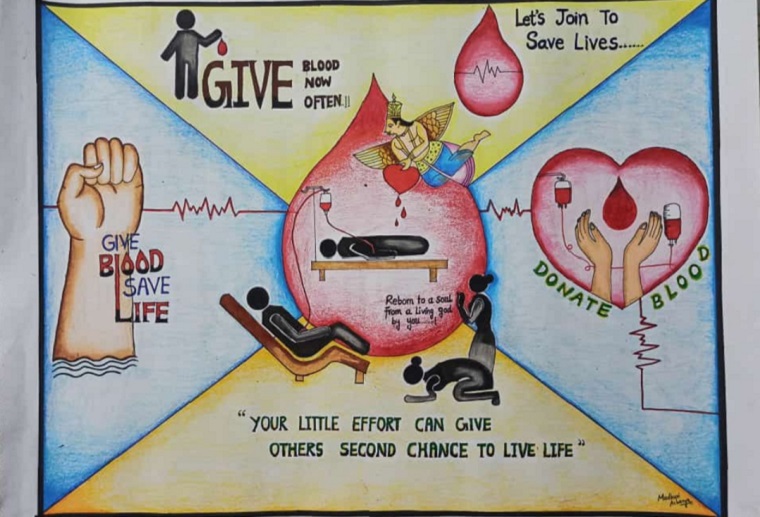 GIVE
BLOOD
NOW
OFTEN.!!
Let's Join To
Save Lives......
GIVE
BLOOD
SAVE
LIFE
Reborn to a soul
From a living god
by you......!
DONATE BLOOD
"YOUR LITTLE EFFORT CAN GIVE
OTHERS SECOND CHANCE TO LIVE LIFE"